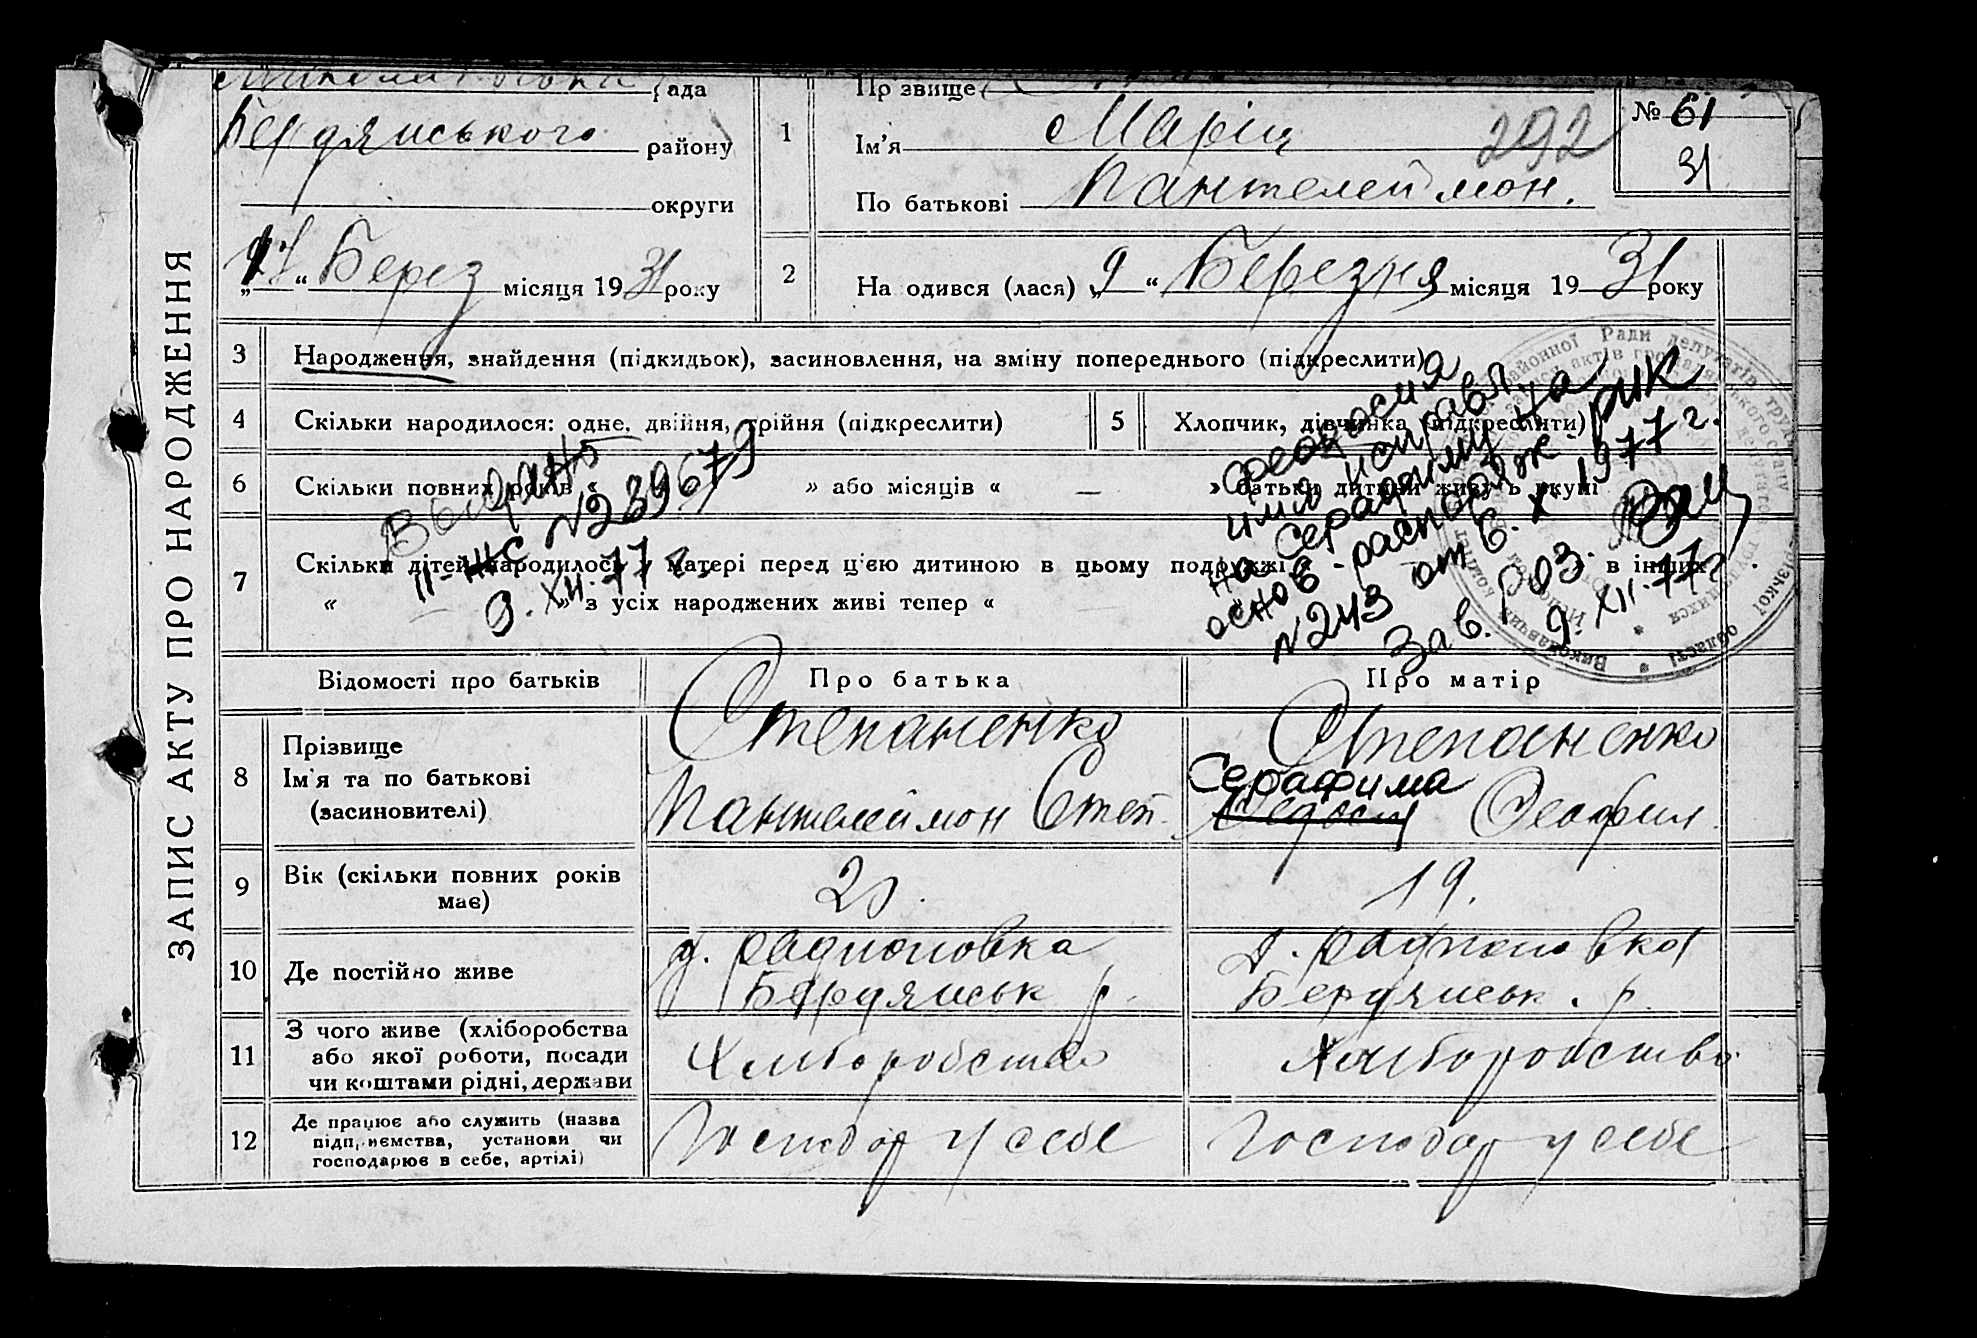 ЗАПИС АКТУ ПРО НАРОДЖЕННЯ
рада
Бердянського району
округи
„ “ Берез місяця 1931 року
1
Прізвище
Ім'я Марія
По батькові Пантелеймон.
292
№ 61
31
2
На одився (лася) „9“ Березня місяця 1931 року
3
Народження, знайдення (підкидьок), засиновлення, на зміну попереднього (підкреслити)
4
Скільки народилося: одне, двійня, трійня (підкреслити)
5
Хлопчик, дівчинка (підкреслити)
6
Скільки повних років « » або місяців « — » батьки дитини живуть вкупі
7
Скільки дітей народилося у матері перед цією дитиною в цьому подружжі в інших
« » з усіх народжених живі тепер «
Выдано
II-ЖС №239679
9.XII.77 г.
Феодосия
имя исправл
на Серафиму на
основ. распоряж. РИК
№243 от 6.X 1977 г.
Зав.
9.XII.77г
Відомості про батьків
Про батька
Про матір
8
Прізвище
Ім'я та по батькові
(засиновителі)
Степаненко
Пантелеймон Степ.
Степаненко
Серафима
Феофил.
9
Вік (скільки повних років має)
19.
10
Де постійно живе
Бердянськ р.
Бердянськ. р.
11
З чого живе (хліборобства
або якої роботи, посади
чи коштами рідні, держави
Хліборобство
Хліборобство
12
Де працює або служить (назва
підприємства, установи чи
господарює в себе, артілі)
Господар у себе
Господар у себе